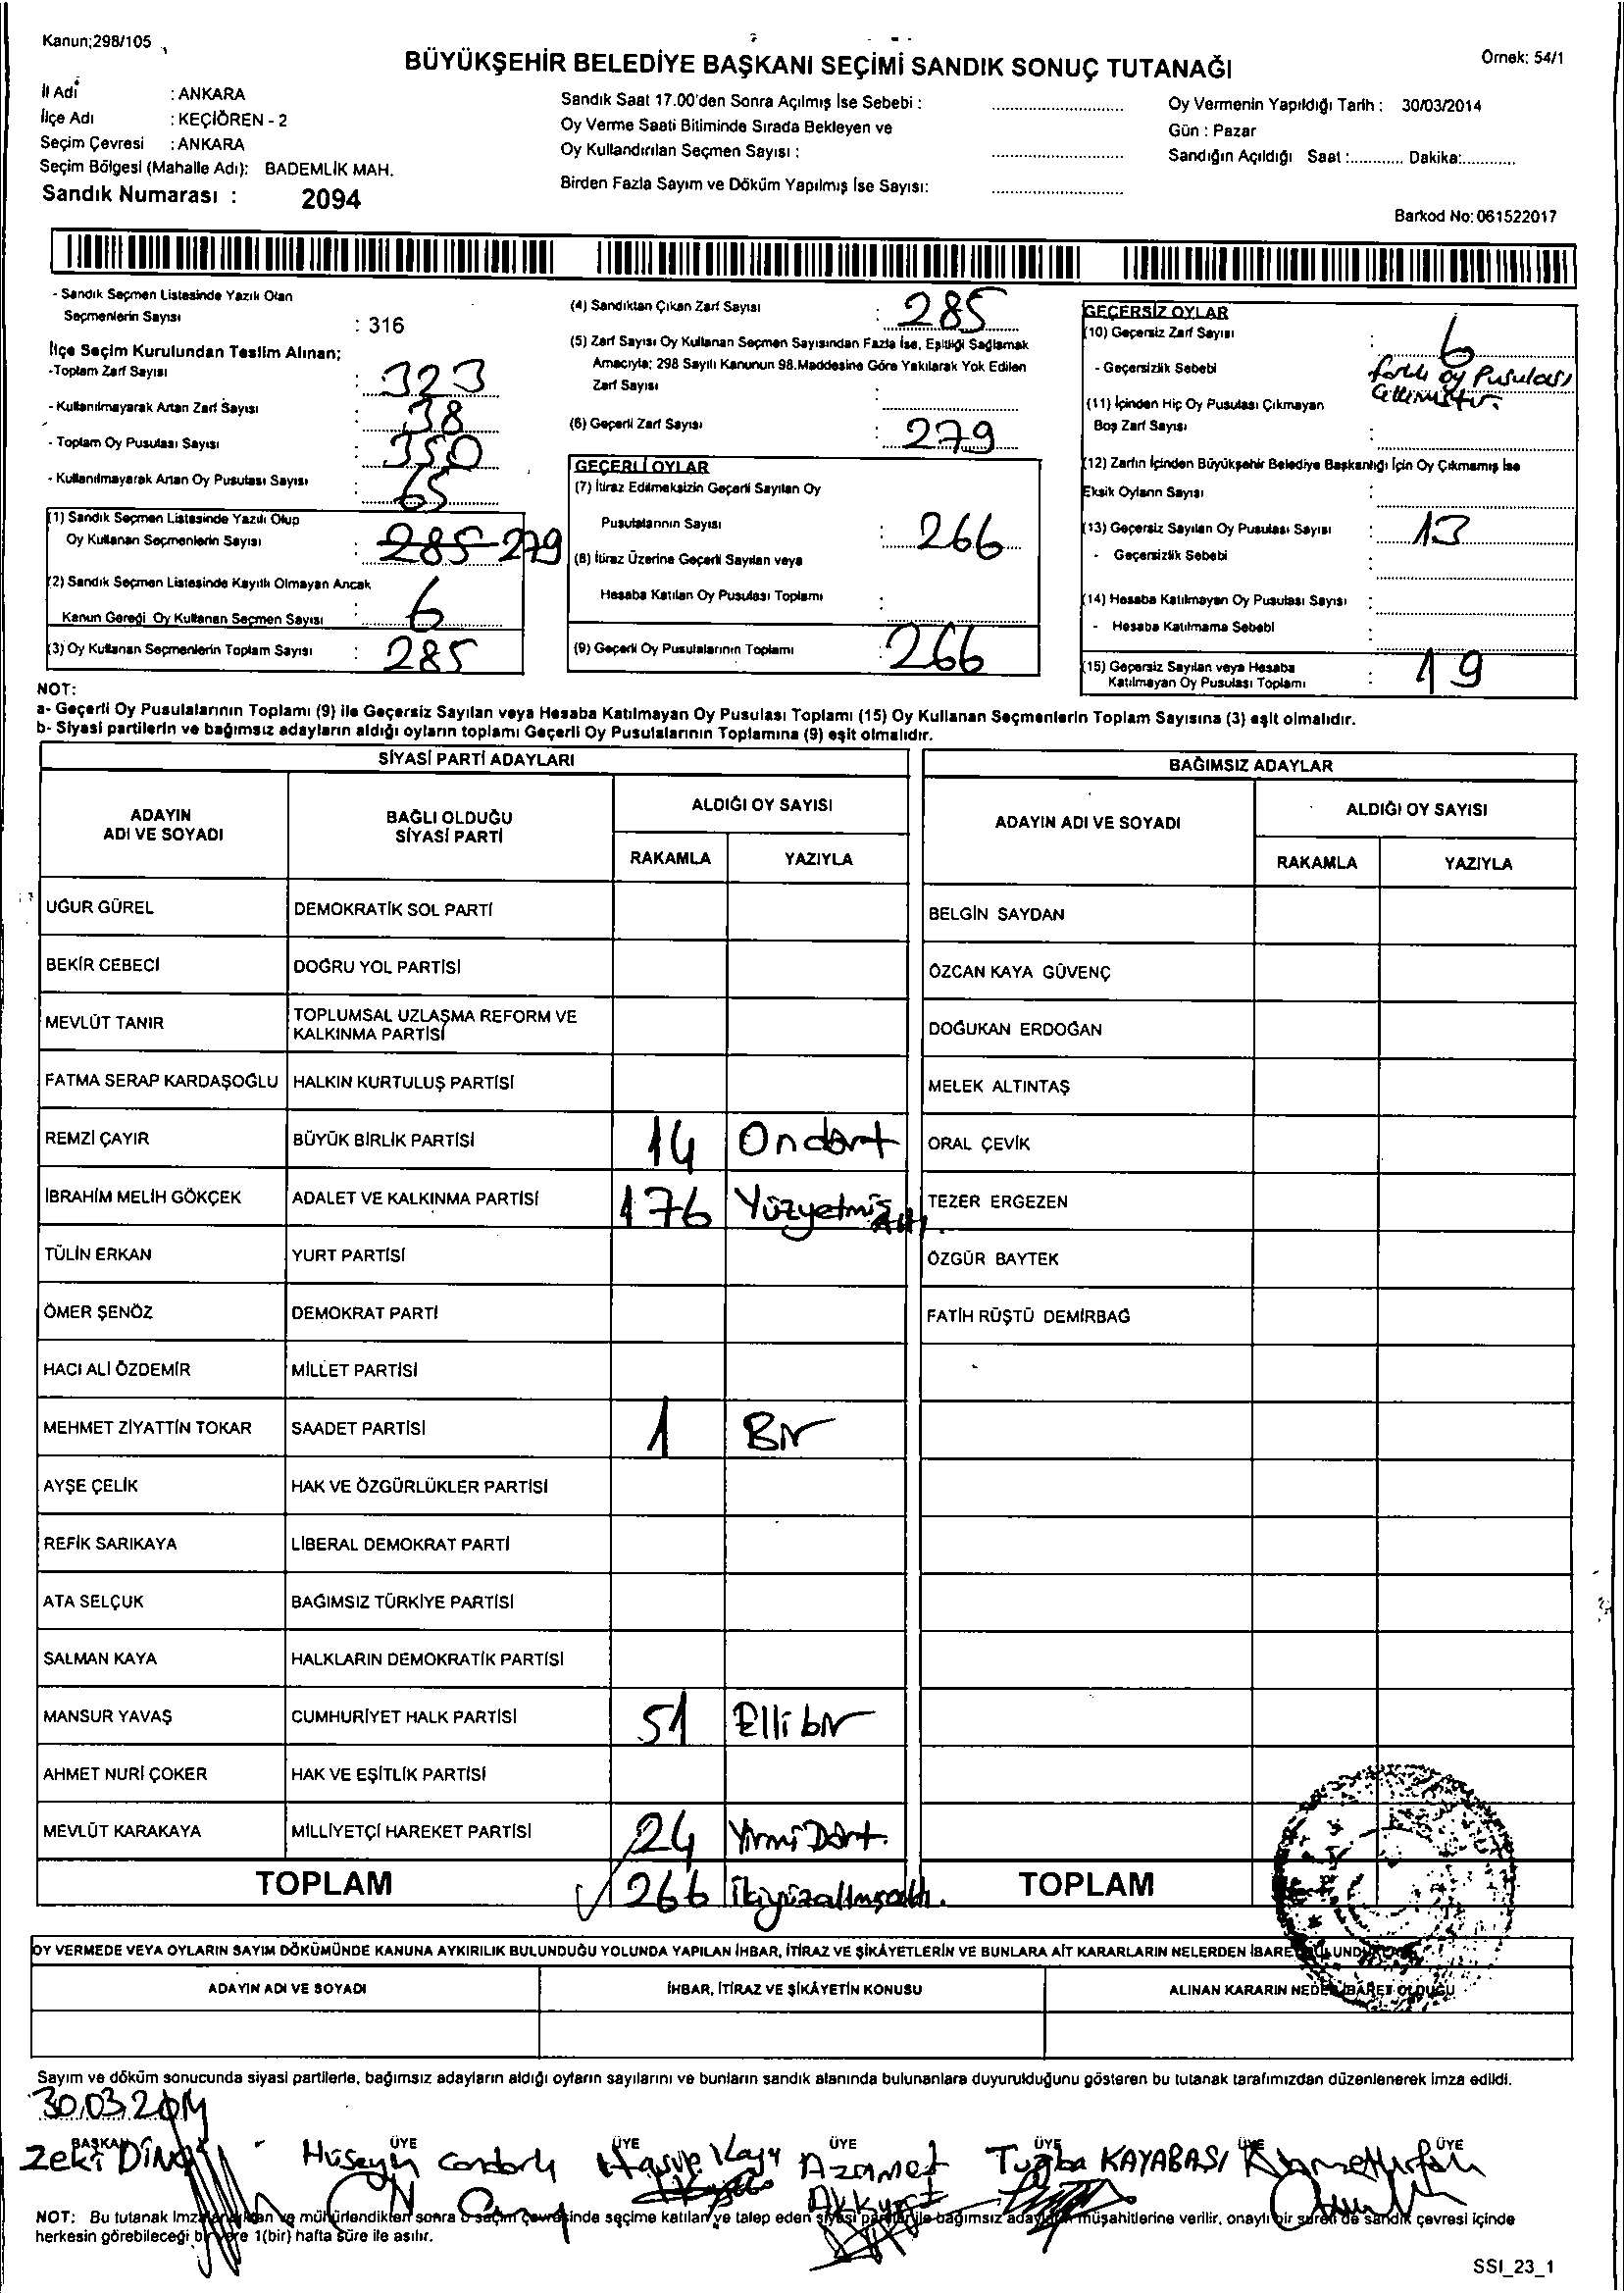 Kanun;298/105
Örnek: 54/1
BÜYÜKŞEHİR BELEDİYE BAŞKANI SEÇİMİ SANDIK SONUÇ TUTANAĞI
İl Adı : ANKARA
İlçe Adı : KEÇİÖREN - 2
Seçim Çevresi : ANKARA
Seçim Bölgesi (Mahalle Adı): BADEMLİK MAH.
Sandık Numarası : 2094
Sandık Saat 17.00'den Sonra Açılmış İse Sebebi :
Oy Verme Saati Bitiminde Sırada Bekleyen ve
Oy Kullandırılan Seçmen Sayısı :
Birden Fazla Sayım ve Döküm Yapılmış İse Sayısı:
Oy Vermenin Yapıldığı Tarih : 30/03/2014
Gün : Pazar
Sandığın Açıldığı Saat :............ Dakika:............
Barkod No: 061522017
- Sandık Seçmen Listesinde Yazılı Olan
Seçmenlerin Sayısı : 316
İlçe Seçim Kurulundan Teslim Alınan;
-Toplam Zarf Sayısı : 323
- Kullanılmayarak Artan Zarf Sayısı : 38
- Toplam Oy Pusulası Sayısı : 350
- Kullanılmayarak Artan Oy Pusulası Sayısı : 65
(1) Sandık Seçmen Listesinde Yazılı Olup
Oy Kullanan Seçmenlerin Sayısı : 285 279
(2) Sandık Seçmen Listesinde Kayıtlı Olmayan Ancak
Kanun Gereği Oy Kullanan Seçmen Sayısı : 6
(3) Oy Kullanan Seçmenlerin Toplam Sayısı : 285
(4) Sandıktan Çıkan Zarf Sayısı : 285
(5) Zarf Sayısı Oy Kullanan Seçmen Sayısından Fazla İse, Eşitliği Sağlamak
Amacıyla; 298 Sayılı Kanunun 98.Maddesine Göre Yakılarak Yok Edilen
Zarf Sayısı :
(6) Geçerli Zarf Sayısı : 279
GEÇERLİ OYLAR
(7) İtiraz Edilmeksizin Geçerli Sayılan Oy
Pusulalarının Sayısı : 266
(8) İtiraz Üzerine Geçerli Sayılan veya
Hesaba Katılan Oy Pusulası Toplamı :
(9) Geçerli Oy Pusulalarının Toplamı : 266
GEÇERSİZ OYLAR
(10) Geçersiz Zarf Sayısı : 6
- Geçersizlik Sebebi : farklı oy Pusulası
(11) İçinden Hiç Oy Pusulası Çıkmayan
Boş Zarf Sayısı :
(12) Zarfın İçinden Büyükşehir Belediye Başkanlığı İçin Oy Çıkmamış İse
Eksik Oyların Sayısı :
(13) Geçersiz Sayılan Oy Pusulası Sayısı : 13
- Geçersizlik Sebebi :
(14) Hesaba Katılmayan Oy Pusulası Sayısı :
- Hesaba Katılmama Sebebi :
(15) Geçersiz Sayılan veya Hesaba
Katılmayan Oy Pusulası Toplamı : 19
NOT:
a- Geçerli Oy Pusulalarının Toplamı (9) ile Geçersiz Sayılan veya Hesaba Katılmayan Oy Pusulası Toplamı (15) Oy Kullanan Seçmenlerin Toplam Sayısına (3) eşit olmalıdır.
b- Siyasi partilerin ve bağımsız adayların aldığı oyların toplamı Geçerli Oy Pusulalarının Toplamına (9) eşit olmalıdır.
SİYASİ PARTİ ADAYLARI
ADAYIN ADI VE SOYADI
BAĞLI OLDUĞU SİYASİ PARTİ
ALDIĞI OY SAYISI
RAKAMLA YAZIYLA
UĞUR GÜREL DEMOKRATİK SOL PARTİ
BEKİR CEBECİ DOĞRU YOL PARTİSİ
MEVLÜT TANIR TOPLUMSAL UZLAŞMA REFORM VE
KALKINMA PARTİSİ
FATMA SERAP KARDAŞOĞLU HALKIN KURTULUŞ PARTİSİ
REMZİ ÇAYIR BÜYÜK BİRLİK PARTİSİ 14 Ondört
İBRAHİM MELİH GÖKÇEK ADALET VE KALKINMA PARTİSİ 176 Yüzyetmiş Altı.
TÜLİN ERKAN YURT PARTİSİ
ÖMER ŞENÖZ DEMOKRAT PARTİ
HACI ALİ ÖZDEMİR MİLLET PARTİSİ
MEHMET ZİYATTİN TOKAR SAADET PARTİSİ 1 Bir
AYŞE ÇELİK HAK VE ÖZGÜRLÜKLER PARTİSİ
REFİK SARIKAYA LİBERAL DEMOKRAT PARTİ
ATA SELÇUK BAĞIMSIZ TÜRKİYE PARTİSİ
SALMAN KAYA HALKLARIN DEMOKRATİK PARTİSİ
MANSUR YAVAŞ CUMHURİYET HALK PARTİSİ 51 Elli bir
AHMET NURİ ÇOKER HAK VE EŞİTLİK PARTİSİ
MEVLÜT KARAKAYA MİLLİYETÇİ HAREKET PARTİSİ 24 Yirmi Dört.
TOPLAM 266 ikiyüzaltmışaltı.
BAĞIMSIZ ADAYLAR
ADAYIN ADI VE SOYADI
ALDIĞI OY SAYISI
RAKAMLA YAZIYLA
BELGİN SAYDAN
ÖZCAN KAYA GÜVENÇ
DOĞUKAN ERDOĞAN
MELEK ALTINTAŞ
ORAL ÇEVİK
TEZER ERGEZEN
ÖZGÜR BAYTEK
FATİH RÜŞTÜ DEMİRBAĞ
TOPLAM
OY VERMEDE VEYA OYLARIN SAYIM DÖKÜMÜNDE KANUNA AYKIRILIK BULUNDUĞU YOLUNDA YAPILAN İHBAR, İTİRAZ VE ŞİKÂYETLERİN VE BUNLARA AİT KARARLARIN NELERDEN
ADAYIN ADI VE SOYADI
İHBAR, İTİRAZ VE ŞİKÂYETİN KONUSU
ALINAN KARARIN NEDEN İBARET OLDUĞU
Sayım ve döküm sonucunda siyasi partilerle, bağımsız adayların aldığı oyların sayılarını ve bunların sandık alanında bulunanlara duyurulduğunu gösteren bu tutanak tarafımızdan düzenlenerek imza edildi.
30.03.2014
BAŞKAN ÜYE ÜYE ÜYE ÜYE ÜYE ÜYE
Zeki Hüseyin Kaya Azamet Akkurt Tuğba KAYABAŞI
NOT: Bu tutanak ve mühürlendikten sonra o seçim çevresinde seçime katılan ve talep eden siyasi partiler ile bağımsız adayların müşahitlerine verilir, onaylı bir sureti de sandık çevresi içinde
herkesin görebileceği bir yere 1(bir) hafta süre ile asılır.
SSI_23_1